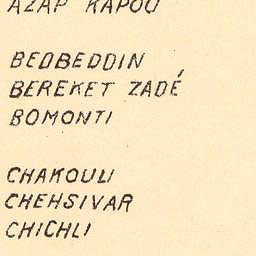 AZAP KAPOU
BEDBEDDIN
BEREKET ZADÉ
BOMONTI
CHAKOULI
CHEHSIVAR
CHICHLI